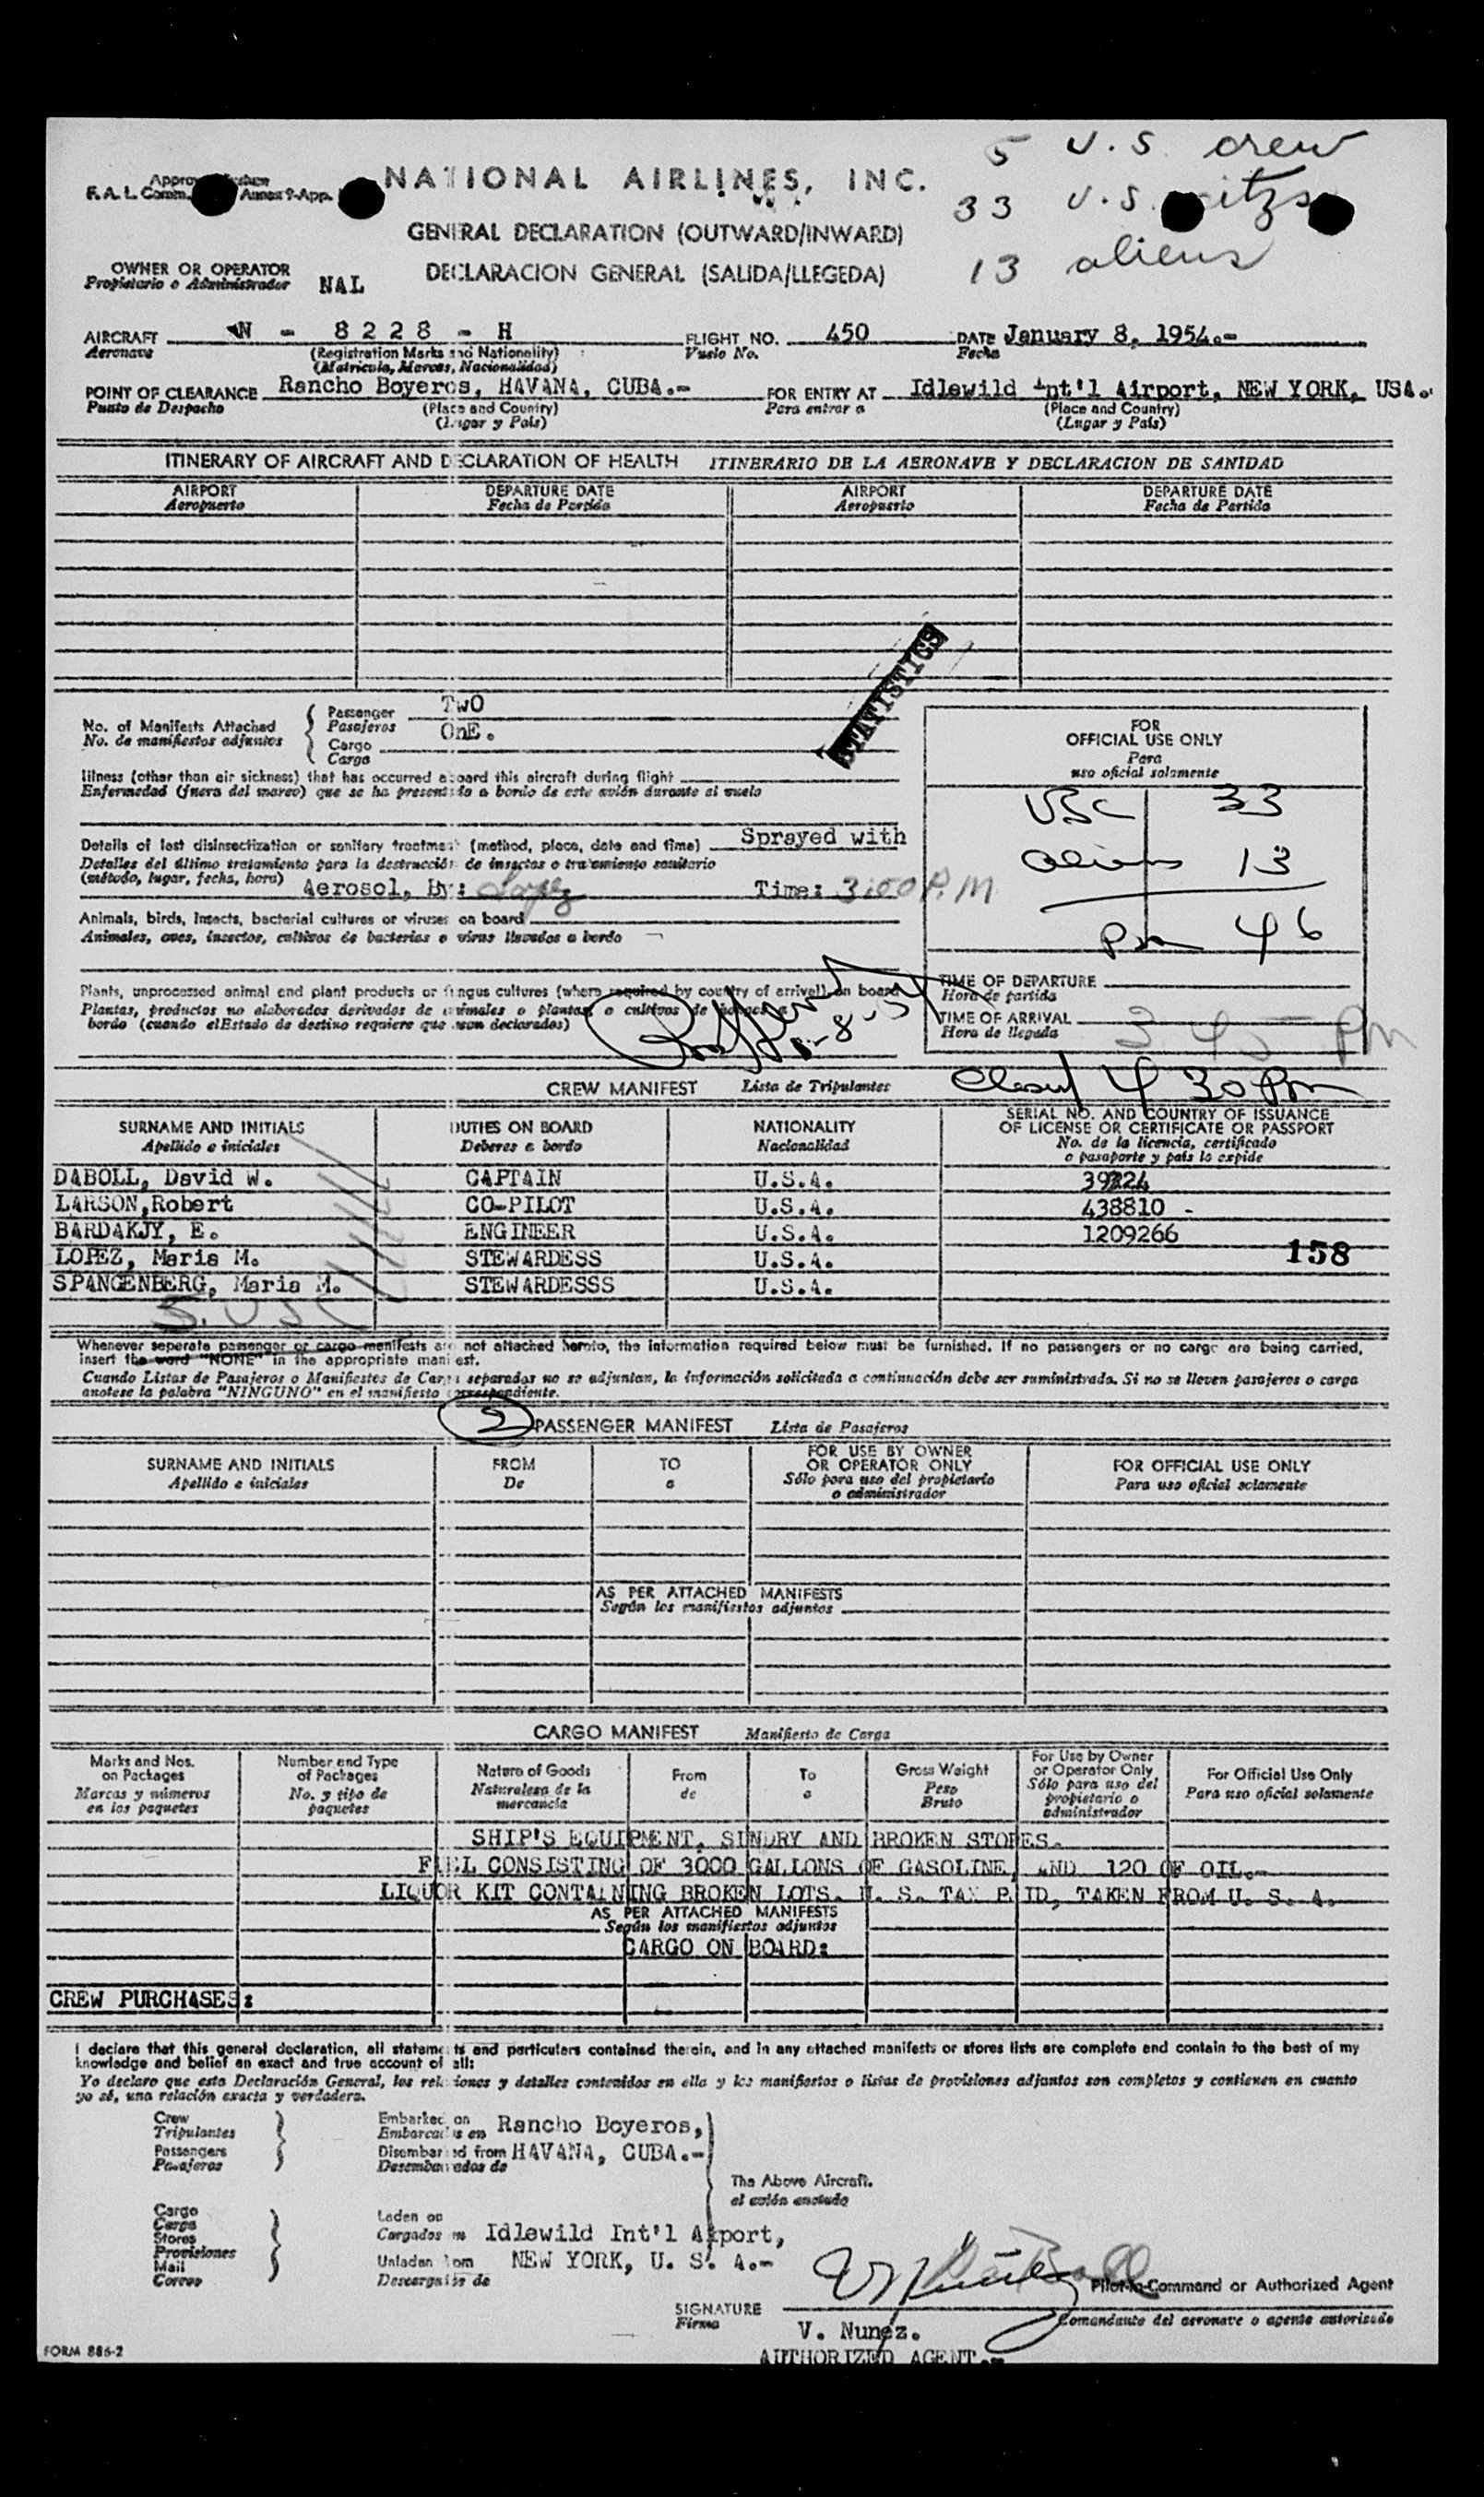 5 U.S. crew
NATIONAL AIRLINES, INC.
F.A.L. Comm. Annex 9-App.
33 U.S. citzs
GENERAL DECLARATION (OUTWARD/INWARD)
13 aliens
OWNER OR OPERATOR NAL DECLARACION GENERAL (SALIDA/LLEGEDA)
Propietario o Administrador
AIRCRAFT N - 8228 - H FLIGHT NO. 450 DATE January 8, 1954.-
Aeronave (Registration Marks and Nationality) Vuelo No. Fecha
(Matricula, Marcas, Nacionalidad)
POINT OF CLEARANCE Rancho Boyeros, HAVANA, CUBA.- FOR ENTRY AT Idlewild Int'l Airport, NEW YORK, USA.
Punto de Despacho (Place and Country) Para entrar a (Place and Country)
(Lugar y Pais) (Lugar y Pais)
ITINERARY OF AIRCRAFT AND DECLARATION OF HEALTH ITINERARIO DE LA AERONAVE Y DECLARACION DE SANIDAD
AIRPORT DEPARTURE DATE AIRPORT DEPARTURE DATE
Aeropuerto Fecha de Partida Aeropuerto Fecha de Partida
STATISTICS
No. of Manifests Attached Passenger TwO
No. de manifiestos adjuntos Pasajeros OnE.
Cargo
Carga
FOR
OFFICIAL USE ONLY
Para
uso oficial solamente
Illness (other than air sickness) that has occurred aboard this aircraft during flight
Enfermedad (fuera del mareo) que se ha presentado a bordo de este avión durante el vuelo
USC 33
Details of last disinsectization or sanitary treatment (method, place, date and time) Sprayed with
Detalles del último tratamiento para la destrucción de insectos o tratamiento sanitario
aliens 13
(método, lugar, fecha, hora) Aerosol, By: Lopez Time: 3:00 P.M
Animals, birds, insects, bacterial cultures or viruses on board
Animales, aves, insectos, cultivos de bacterias o virus llevados a bordo
46
Plants, unprocessed animal and plant products or fungus cultures (where required by country of arrival) on board
Plantas, productos no elaborados derivados de animales o plantas o cultivos de hongos a
bordo (cuando elEstado de destino requiere que sean declarados)
1-8-54
TIME OF DEPARTURE
Hora de partida
TIME OF ARRIVAL 3 45 PM
Hora de llegada
CREW MANIFEST Lista de Tripulantes 4 30 Pm
SURNAME AND INITIALS DUTIES ON BOARD NATIONALITY SERIAL NO. AND COUNTRY OF ISSUANCE
Apellido e iniciales Deberes a bordo Nacionalidad OF LICENSE OR CERTIFICATE OR PASSPORT
No. de la licencia, certificado
o pasaporte y pais lo expide
DABOLL, David W. CAPTAIN U.S.A.
LARSON,Robert CO-PILOT U.S.A. 438810 -
BARDAKJY, E. ENGINEER U.S.A. 1209266
LOPEZ, Maria M. STEWARDESS U.S.A. 158
SPANGENBERG, Maria M. STEWARDESSS U.S.A.
5. USC
Whenever seperate passenger or cargo manifests are not attached hereto, the information required below must be furnished. If no passengers or no cargo are being carried,
insert the word "NONE" in the appropriate manifest.
Cuando Listas de Pasajeros o Manifiestos de Carga separadas no se adjuntan, la información solicitada a continuación debe ser suministrada. Si no se lleven pasajeros o carga
anotese la palabra "NINGUNO" en el manifiesto correspondiente.
2 PASSENGER MANIFEST Lista de Pasajeros
SURNAME AND INITIALS FROM TO FOR USE BY OWNER FOR OFFICIAL USE ONLY
Apellido e iniciales De a OR OPERATOR ONLY Para uso oficial solamente
Sólo para uso del propietario
o administrador
AS PER ATTACHED MANIFESTS
Según los manifiestos adjuntos
CARGO MANIFEST Manifiesto de Carga
Marks and Nos. Number and Type Nature of Goods From To Gross Weight For Use by Owner For Official Use Only
on Packages of Packages Naturaleza de la de a Peso or Operator Only Para uso oficial solamente
Marcas y números No. y tipo de mercancia Bruto Sólo para uso del
en los paquetes paquetes propietario o
administrador
SHIP'S EQUIPMENT, SUNDRY AND BROKEN STORES.
FUEL CONSISTING OF 3000 GALLONS OF GASOLINE, AND 120 OF OIL.-
LIQUOR KIT CONTAINING BROKEN LOTS. U. S. TAX PAID, TAKEN FROM U. S. A.
AS PER ATTACHED MANIFESTS
Según los manifiestos adjuntos
CARGO ON BOARD:
CREW PURCHASES:
I declare that this general declaration, all statements and particulars contained therein, and in any attached manifests or stores lists are complete and contain to the best of my
knowledge and belief an exact and true account of all:
Yo declaro que esta Declaración General, las relaciones y detalles contenidos en ella y los manifiestos o listas de provisiones adjuntos son completos y contienen en cuanto
yo sé, una relación exacta y verdadera.
Crew Embarked on Rancho Boyeros,
Tripulantes Embarcados en
Passengers Disembarked from HAVANA, CUBA.-
Pasajeros Desembarcados de
The Above Aircraft.
el avión anotado
Cargo Laden on
Carga Cargados en Idlewild Int'l Airport,
Stores
Provisiones Unladen from NEW YORK, U. S. A.-
Mail Descargados de
Correo
Pilot-in-Command or Authorized Agent
SIGNATURE
Firma Comandante del aeronave o agente autorizado
V. Nunez.
AUTHORIZED AGENT.-
FORM 886-2